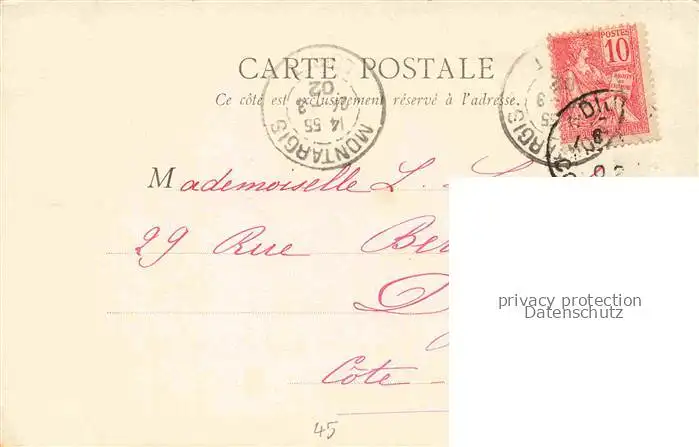 POSTES
10
CARTE POSTALE
Ce côté est exclusivement réservé à l'adresse.
MONTARGIS
14 55
02
Mademoiselle L.
29 Rue Ber
D
Côte -
privacy protection
Datenschutz
45